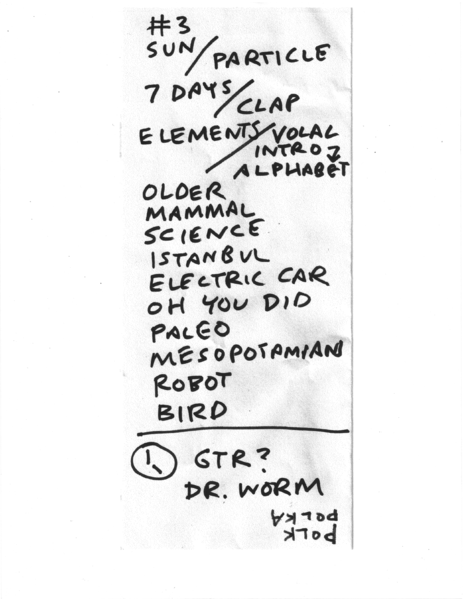 #3
SUN / PARTICLE
7 DAYS / CLAP
ELEMENTS / VOLAL
INTRO
ALPHABET
OLDER
MAMMAL
SCIENCE
ISTANBUL
ELECTRIC CAR
OH YOU DID
PALEO
MESOPOTAMIAN
ROBOT
BIRD
GTR?
DR. WORM
POLKA
POLK